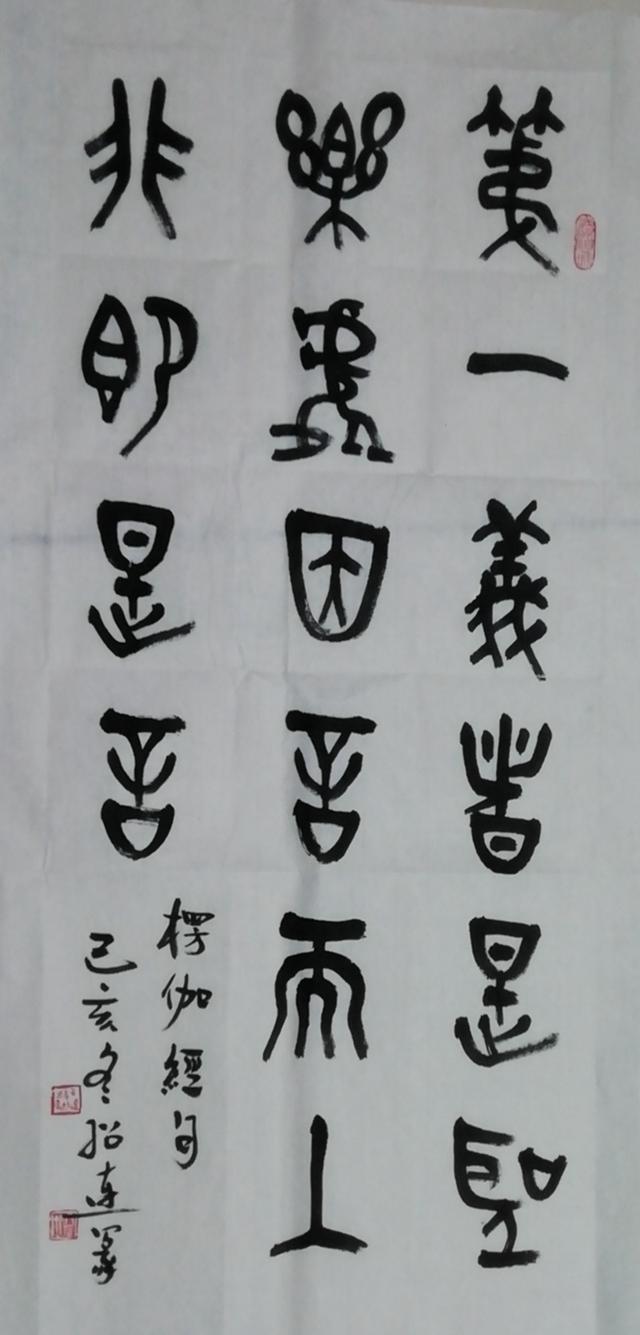 第一義者是聖
樂處因言而入
非即是言
楞伽經句
己亥冬連篆